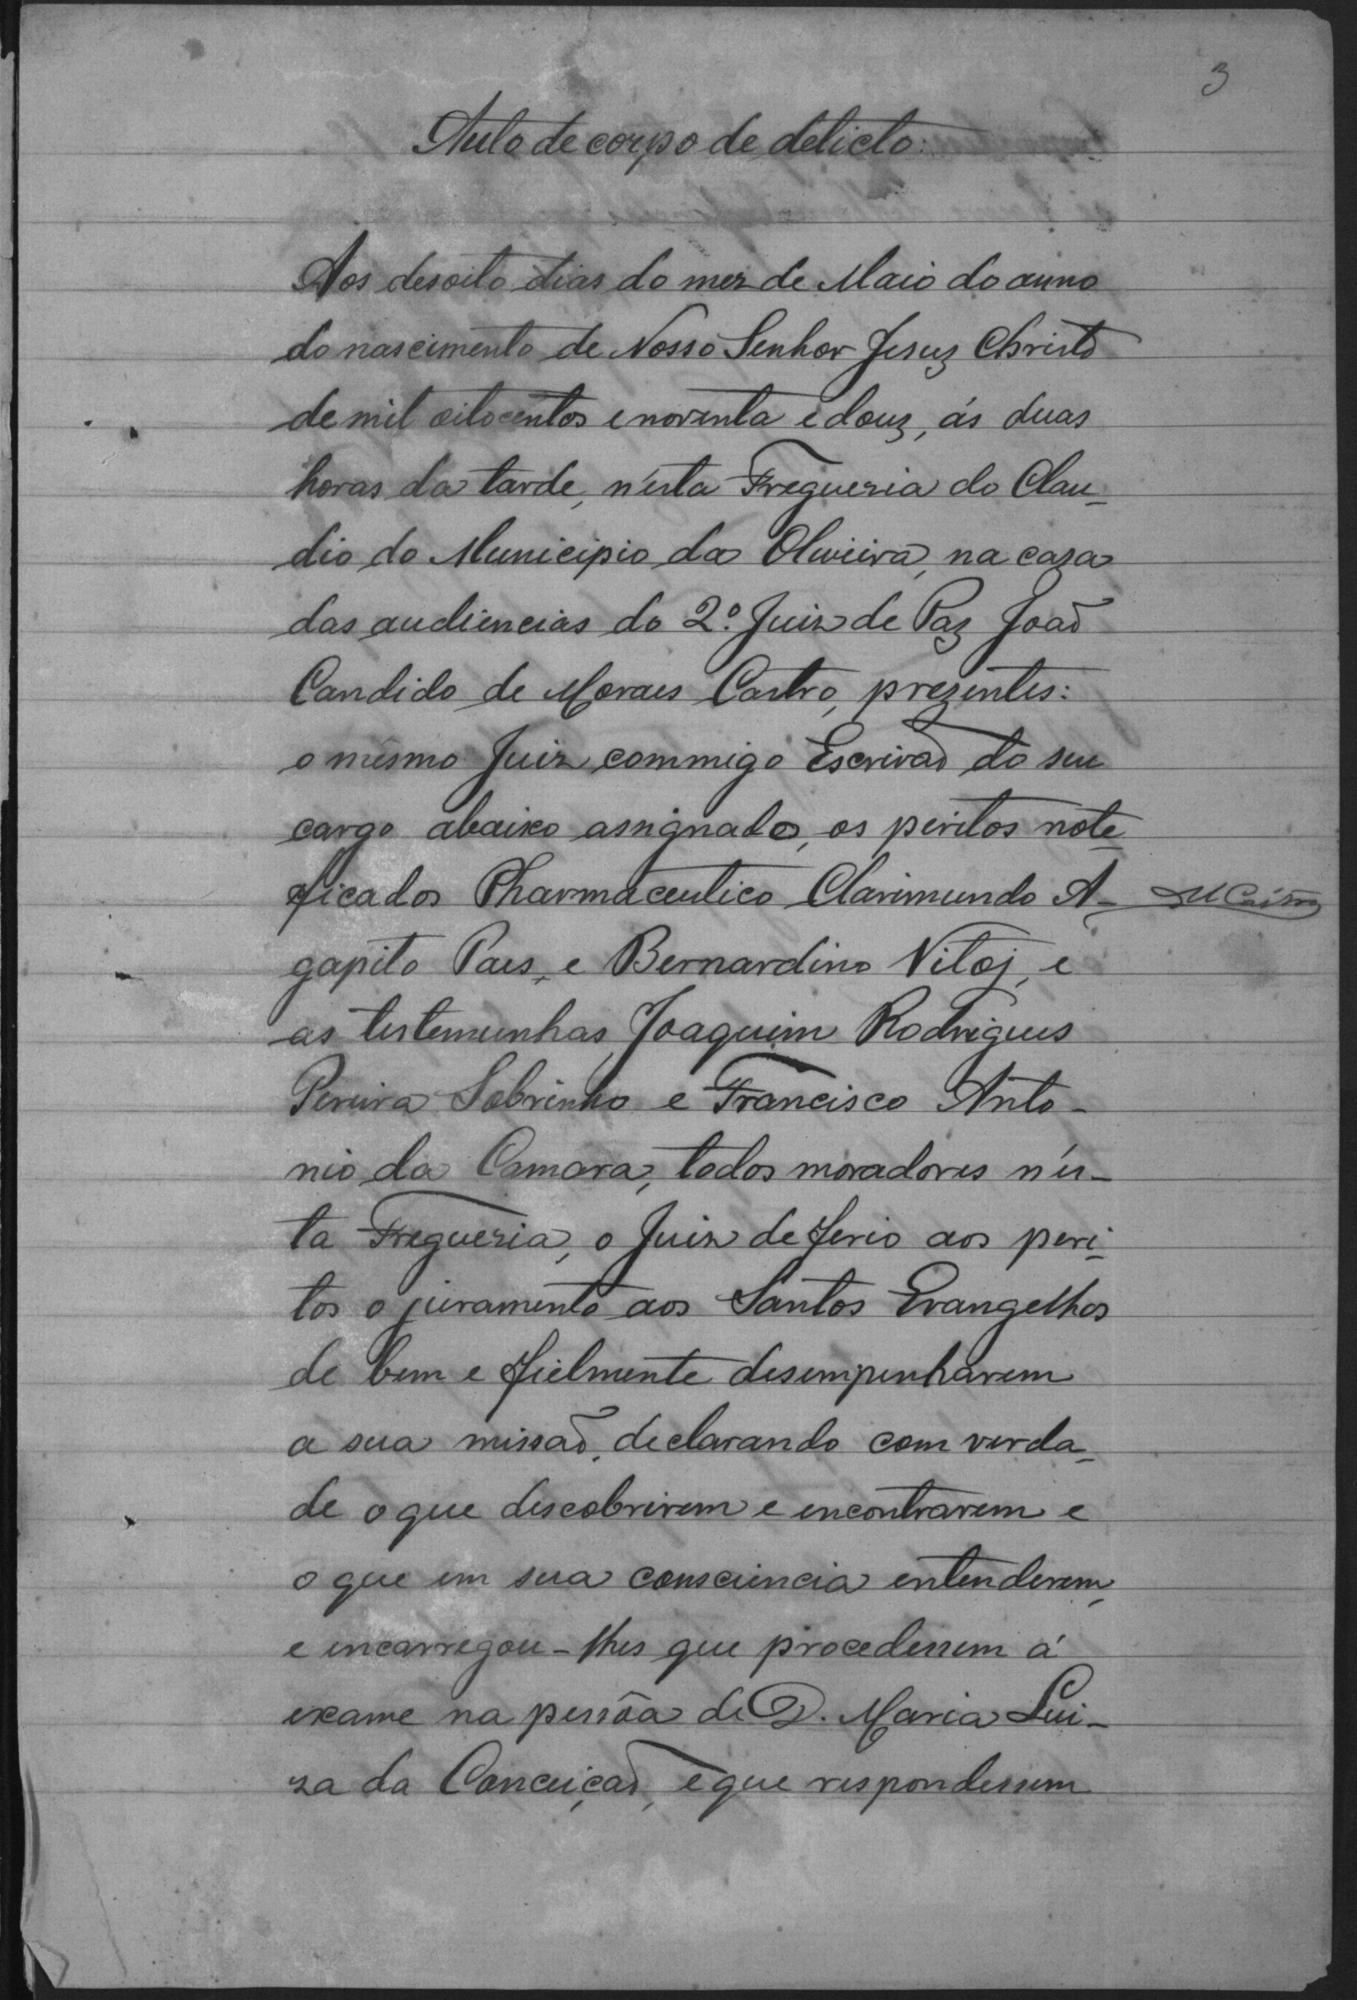 3
Auto de corpo de delicto:
Aos desoito dias do mez de Maio do anno
do nascimento de Nosso Senhor Jesuz Christo
de mil oitocentos e noventa e douz, ás duas
horas da tarde, n'esta Freguezia do Clau-
dio do Municipio da Oliveira, na caza
das audiencias do 2º Juiz de Paz João
Candido de Moraes Castro, prezentes:
o mesmo Juiz commigo Escrivão do seu
cargo abaixo assignado, os peritos note-
ficados Pharmaceutico Clarimundo A-
gapito Paes, e Bernardino Nitoj, e
as testemunhas, Joaquim Rodrigues
Pereira Sobrinho e Francisco Anto-
nio da Camara, todos moradores n'es-
ta Freguezia, o Juiz deferio aos peri-
tos o juramento aos Santos Evangelhos
de bem e fielmente desempenharem
a sua missão, declarando com verda-
de o que descobrirem e encontrarem e
o que em sua consciencia entenderem,
e encarregou-lhes que procedessem á
exame na pessôa de D. Maria Lui-
za da Conceição, e que respondessem